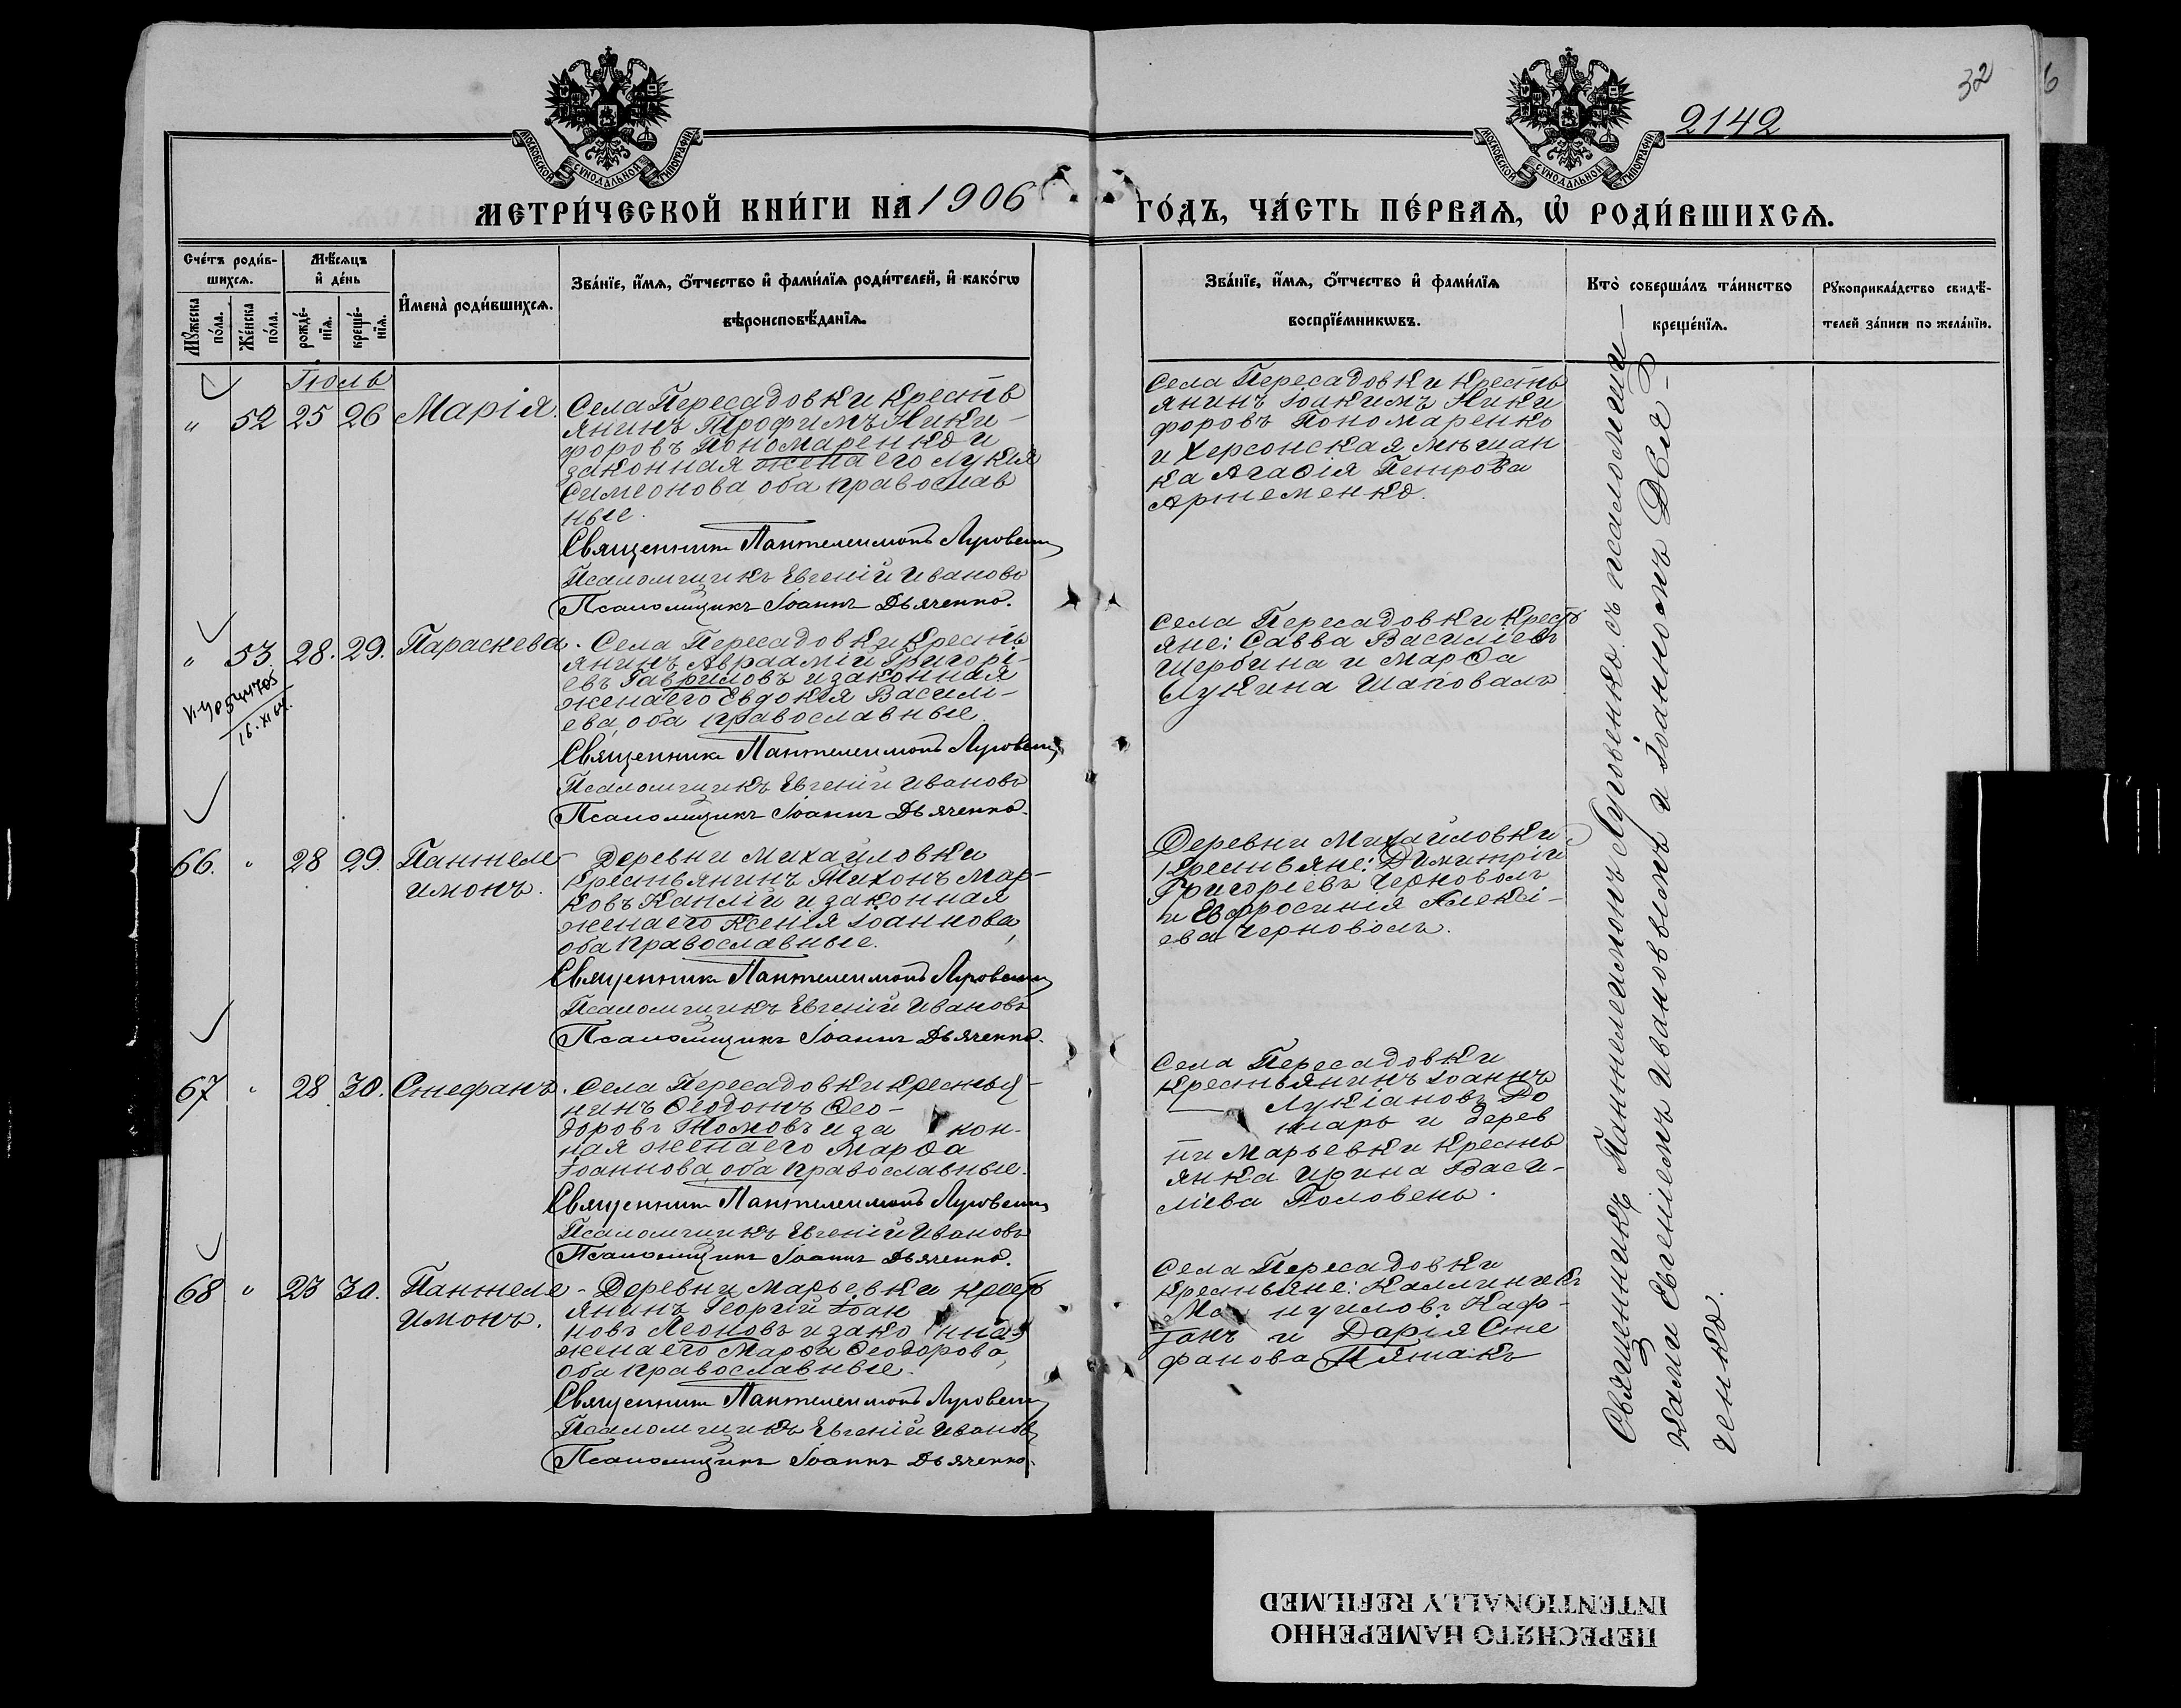 32
6
2142
МОСКОВСКОЙ СѴНОДАЛЬНОЙ ТИПОГРАФІИ
МОСКОВСКОЙ СѴНОДАЛЬНОЙ ТИПОГРАФІИ
МЕТРИ́ЧЕСКОЙ КНИ́ГИ НА 1906 ГО́ДЪ, ЧА́СТЬ ПЕ́РВАѦ, Ѡ҆ РОДИ́ВШИХСѦ.
Сче́тъ роди́в-
шихсѧ.
Мꙋ́жеска по́ла.
Же́нска по́ла.
Мѣ́сѧцъ
и҆ де́нь
рожде́-
нїѧ.
креще́-
нїѧ.
И҆мена̀ роди́вшихсѧ.
Зва́нїе, и҆́мѧ, о҆́тчество и҆ фами́лїѧ роди́телей, и҆ како́гѡ
вѣроисповѣ́данїѧ.
Зва́нїе, и҆́мѧ, о҆́тчество и҆ фами́лїѧ
воспрїе́мникѡвъ.
Кто̀ соверша́лъ та́инство
креще́нїѧ.
Рꙋкоприкла́дство свидѣ́-
телей за́писи по жела́нїю.
Іюль
" 52 25 26 Марія.
Села Пересадовки кресть
янинъ Трофимъ Ники-
форовъ Пономаренко и
законная жена его Лукія
Симеонова, оба православ
ные.
Священникъ Пантелеимонъ Луговенко
Псаломщикъ Евгеній Ивановъ
Псаломщикъ Іоаннъ Дьяченко.
Села Пересадовки кресть
янинъ Іоакимъ Ники
форовъ Пономаренко
и Херсонская мѣщан
ка Агафія Петрова
Артеменко.
" 53. 28. 29. Параскева.
16.XI
Села Пересадовки кресть
янинъ Авраамій Григорі-
евъ Гавриловъ и законная
жена его Евдокія Васили-
ева, оба православные.
Священникъ Пантелеимонъ Луговенко
Псаломщикъ Евгеній Ивановъ
Псаломщикъ Іоаннъ Дьяченко.
Села Пересадовки кресть
яне: Савва Василіевъ
Щербина и Марѳа
Лукина Шаповалъ
66. " 28 29. Пантеле-
имонъ.
Деревни Михайловки
крестьянинъ Тихонъ Мар-
ковъ Каплій и законная
жена его Ксенія Іоаннова,
оба православные.
Священникъ Пантелеимонъ Луговенко
Псаломщикъ Евгеній Ивановъ
Псаломщикъ Іоаннъ Дьяченко.
Деревни Михайловки
крестьяне: Димитрій
Григоріевъ Черноволъ
и Евфросинія Алексі-
ева Черноволъ.
67 " 28 30. Стефанъ.
Села Пересадовки крестья-
нинъ Ѳеодотъ Ѳео-
доровъ Томовъ и за кон-
ная жена его Марѳа
Іоаннова, оба православные.
Священникъ Пантелеимонъ Луговенко
Псаломщикъ Евгеній Ивановъ
Псаломщикъ Іоаннъ Дьяченко.
Села Пересадовки
крестьянинъ Іоаннъ
Лукіановъ
и дерев
ни Марьевки кресть
янка Ирина Васи-
ліева Половень.
68 " 23 30. Пантеле-
имонъ.
Деревни Марьевки кресть
янинъ Георгій Іоан
новъ Леоновъ и зако нная
жена его Марѳа Ѳеодорова,
оба православные.
Священникъ Пантелеимонъ Луговенко
Псаломщикъ Евгеній Ивановъ
Псаломщикъ Іоаннъ Дьяченко.
Села Пересадовки
крестьяне: Каллиникъ
Ма нуиловъ Каф-
танъ и Дарія Сте
фанова Пятакъ
Священникъ Пантелеимонъ Луговенко съ псаломщи-
ками Евгеніемъ Ивановымъ и Іоанномъ Дья-
ченко.
ПЕРЕСНЯТО НАМЕРЕННО
INTENTIONALLY REFILMED